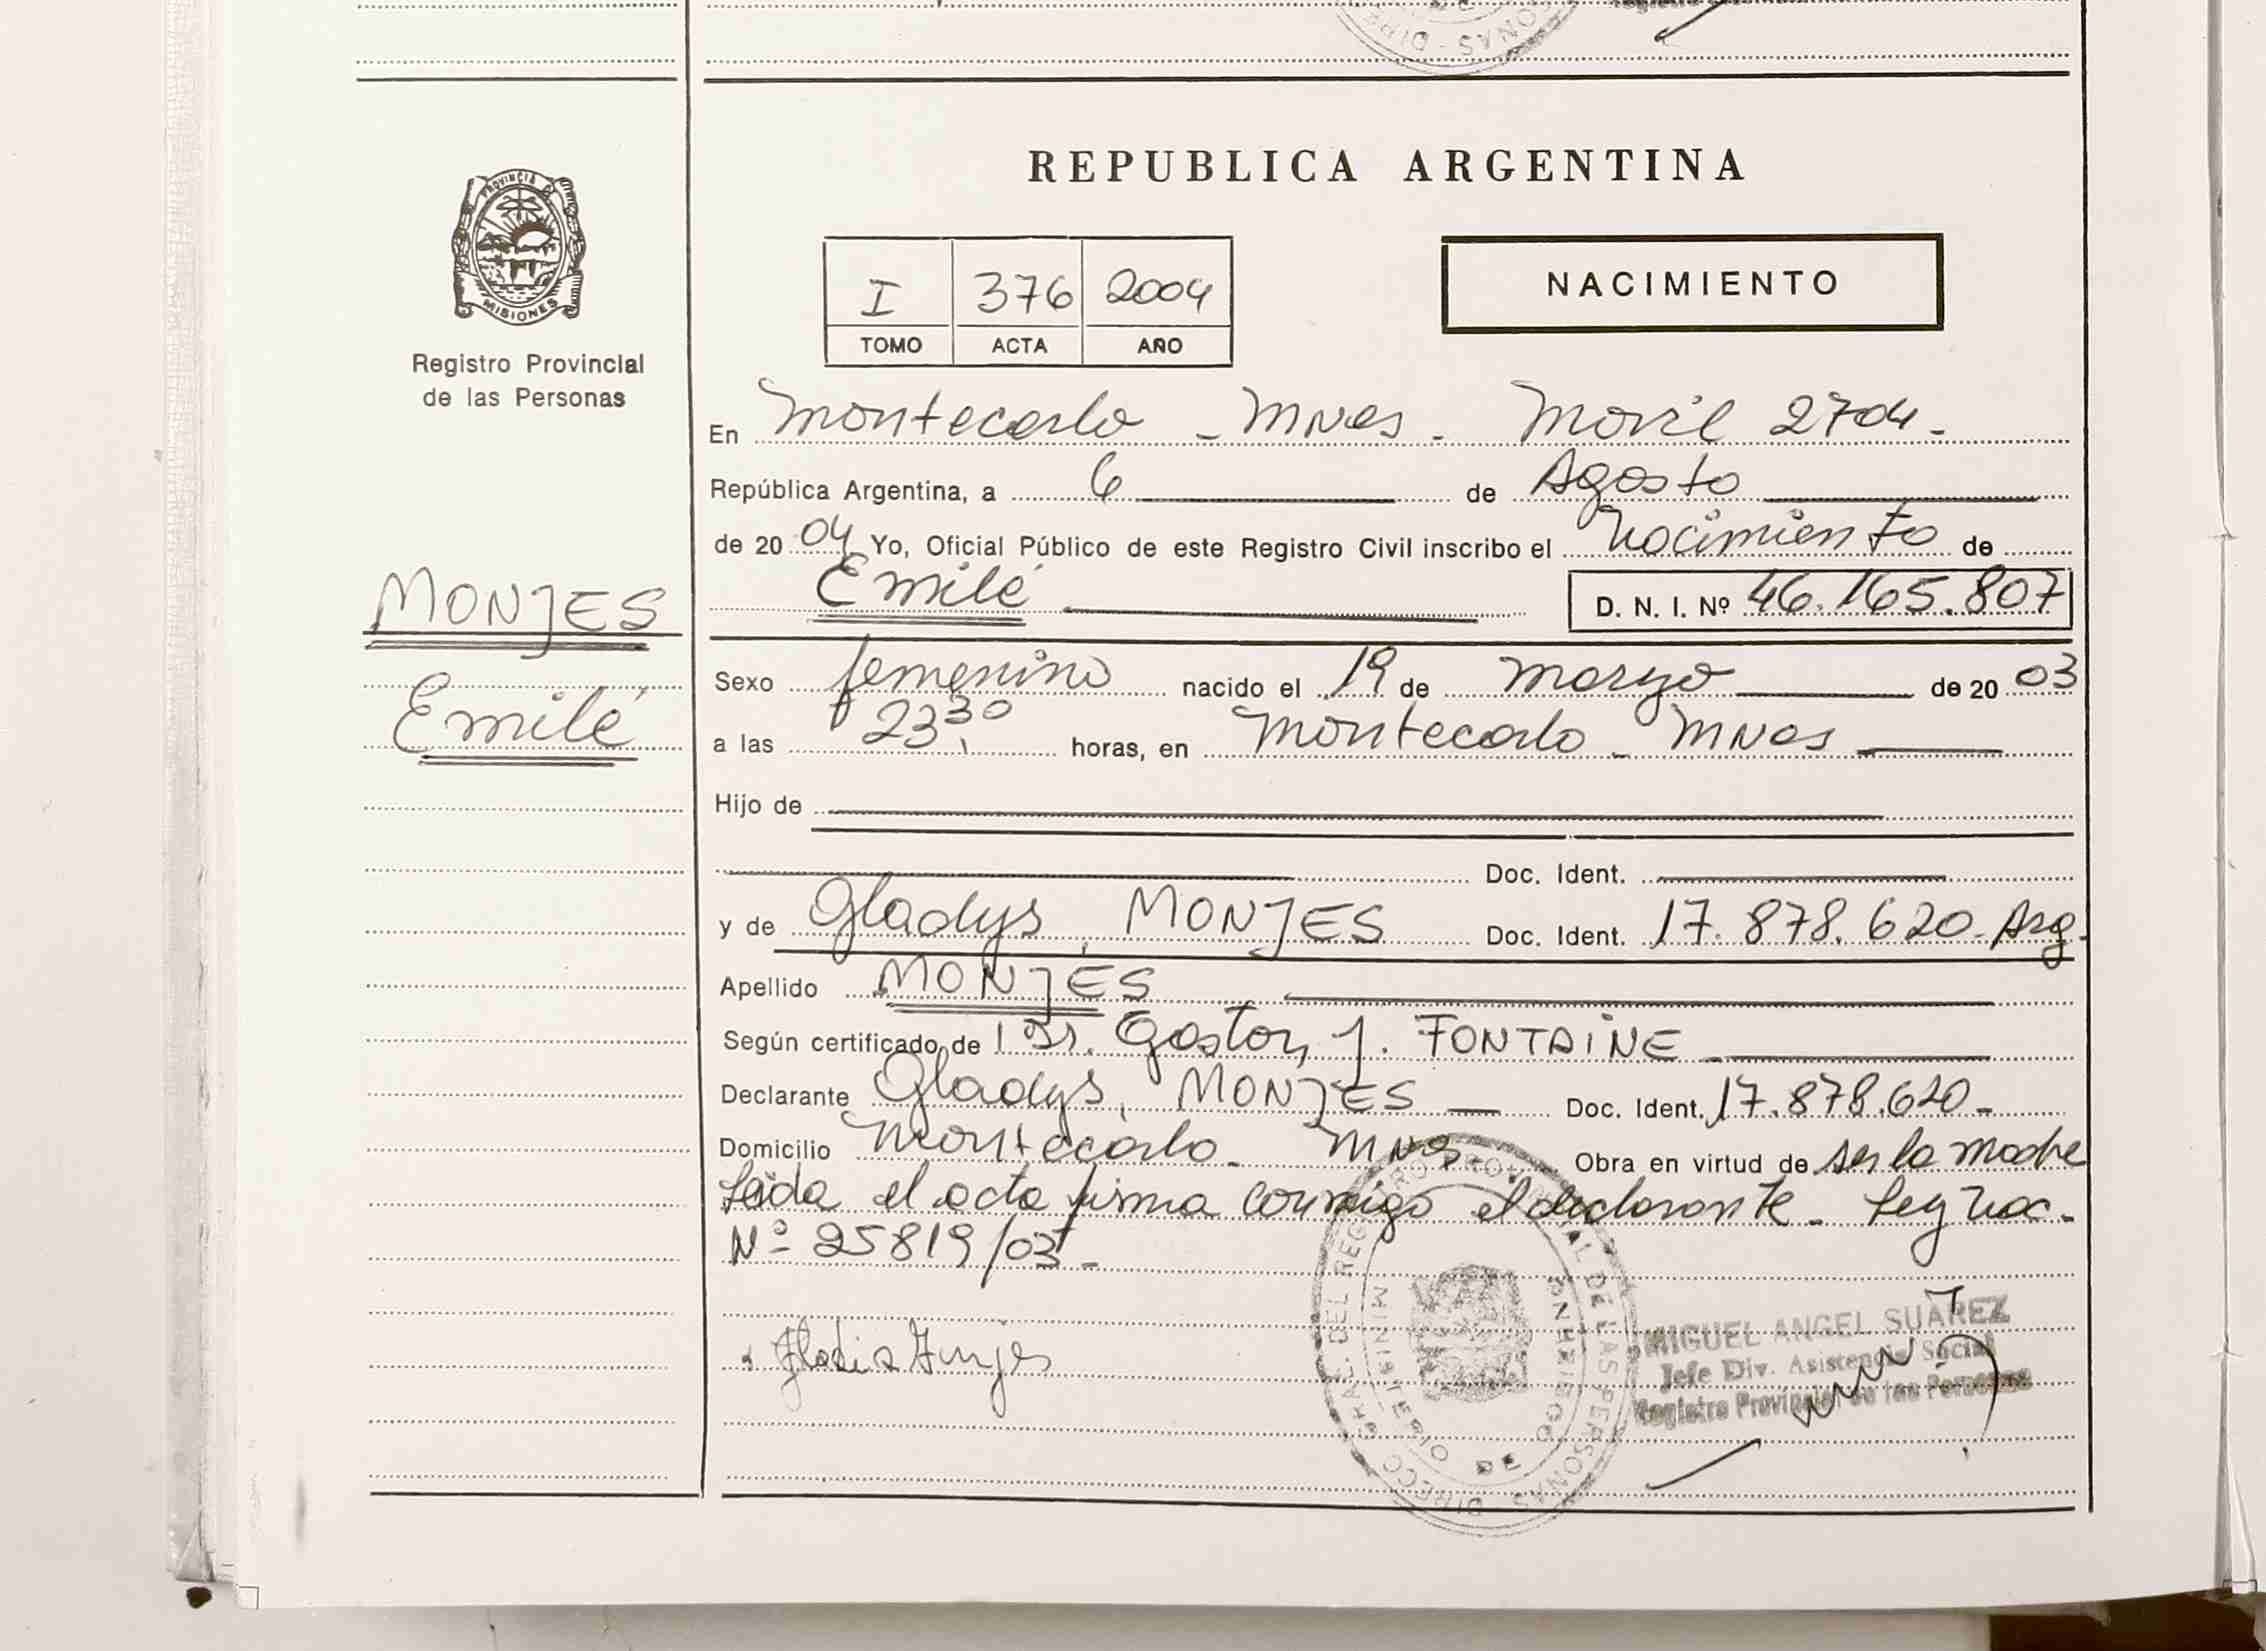 REPUBLICA ARGENTINA
PROVINCIA D MISIONES
Registro Provincial
de las Personas
I 376 2004
TOMO ACTA AÑO
NACIMIENTO
En Montecarlo - Mnes - Movil 2704 -
República Argentina, a 6 de Agosto
de 2004 Yo, Oficial Público de este Registro Civil inscribo el Nacimiento de
Emilé D. N. I. Nº 46.165.807
MONJES
Emilé
Sexo femenino nacido el 19 de marzo de 2003
a las 23,30 horas, en Montecarlo - Mnes
Hijo de
Doc. Ident.
y de Gladys, MONJES Doc. Ident. 17.878.620 - Arg.
Apellido MONJES
Según certificado de Dr. Gaston J. FONTAINE
Declarante Gladys, MONJES Doc. Ident. 17.878.620 -
Domicilio Montecarlo - Mnes - Obra en virtud de ser la madre
Leida el acta firma conmigo el declarante - Ley Nac.
Nº 25819/03 -
DIRECC. GRAL. DEL REGISTRO PROVINCIAL DE LAS PERSONAS
MINISTERIO DE GOBIERNO
MIGUEL ANGEL SUAREZ
Jefe Div. Asistencia Social
Registro Provincial de las Personas